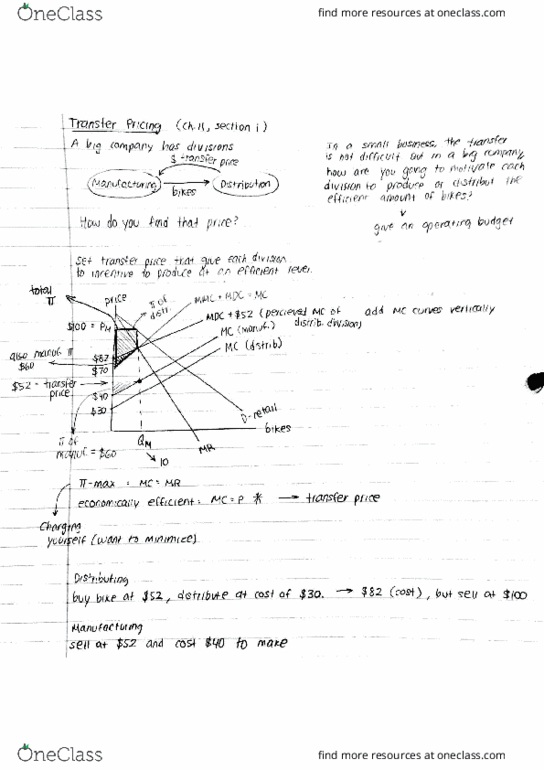 OneClass
find more resources at oneclass.com
Transfer Pricing (ch.11, section 1)
A big company has divisions
$ transfer price
Manufacturing
bikes
Distribution
How do you find that price?
In a small business, the transfer
is not difficult but in a big company,
how are you going to motivate each
division to produce or distribut the
efficient amount of bikes?
give an operating budget
Set transfer price that give each division
to incentive to produce at an efficient level.
total π
price
π of distr.
MMC + MDC = MC
MDC + $52 (percieved MC of distrib. division)
add MC curves vertically
MC (manuf.)
MC (distrib)
$100 = PM
also manuf. π
$60
$82
$70
$52 - transfer price
$40
$30
D-retail
bikes
π of manuf = $60
QM
10
MR
π-max : MC = MR
economically efficient: MC = P * → transfer price
Charging
yourself (want to minimize)
Distributing
buy bike at $52, distribute at cost of $30. → $82 (cost), but sell at $100
Manufacturing
sell at $52 and cost $40 to make
OneClass
find more resources at oneclass.com